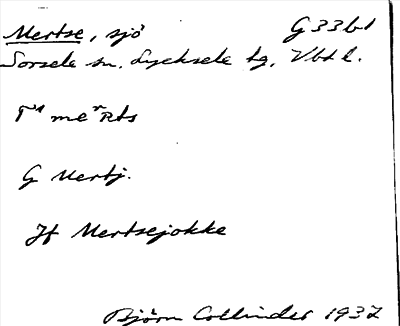 Mertse, sjö G 33 b 1
Sorsele sn. Lycksele lg, Vbt l.
me Rts
G Mertj.
Jf Mertsejokke
Björn Collinder 1937